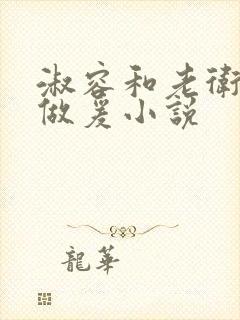 淑容和老衛
做爰小説
龍華